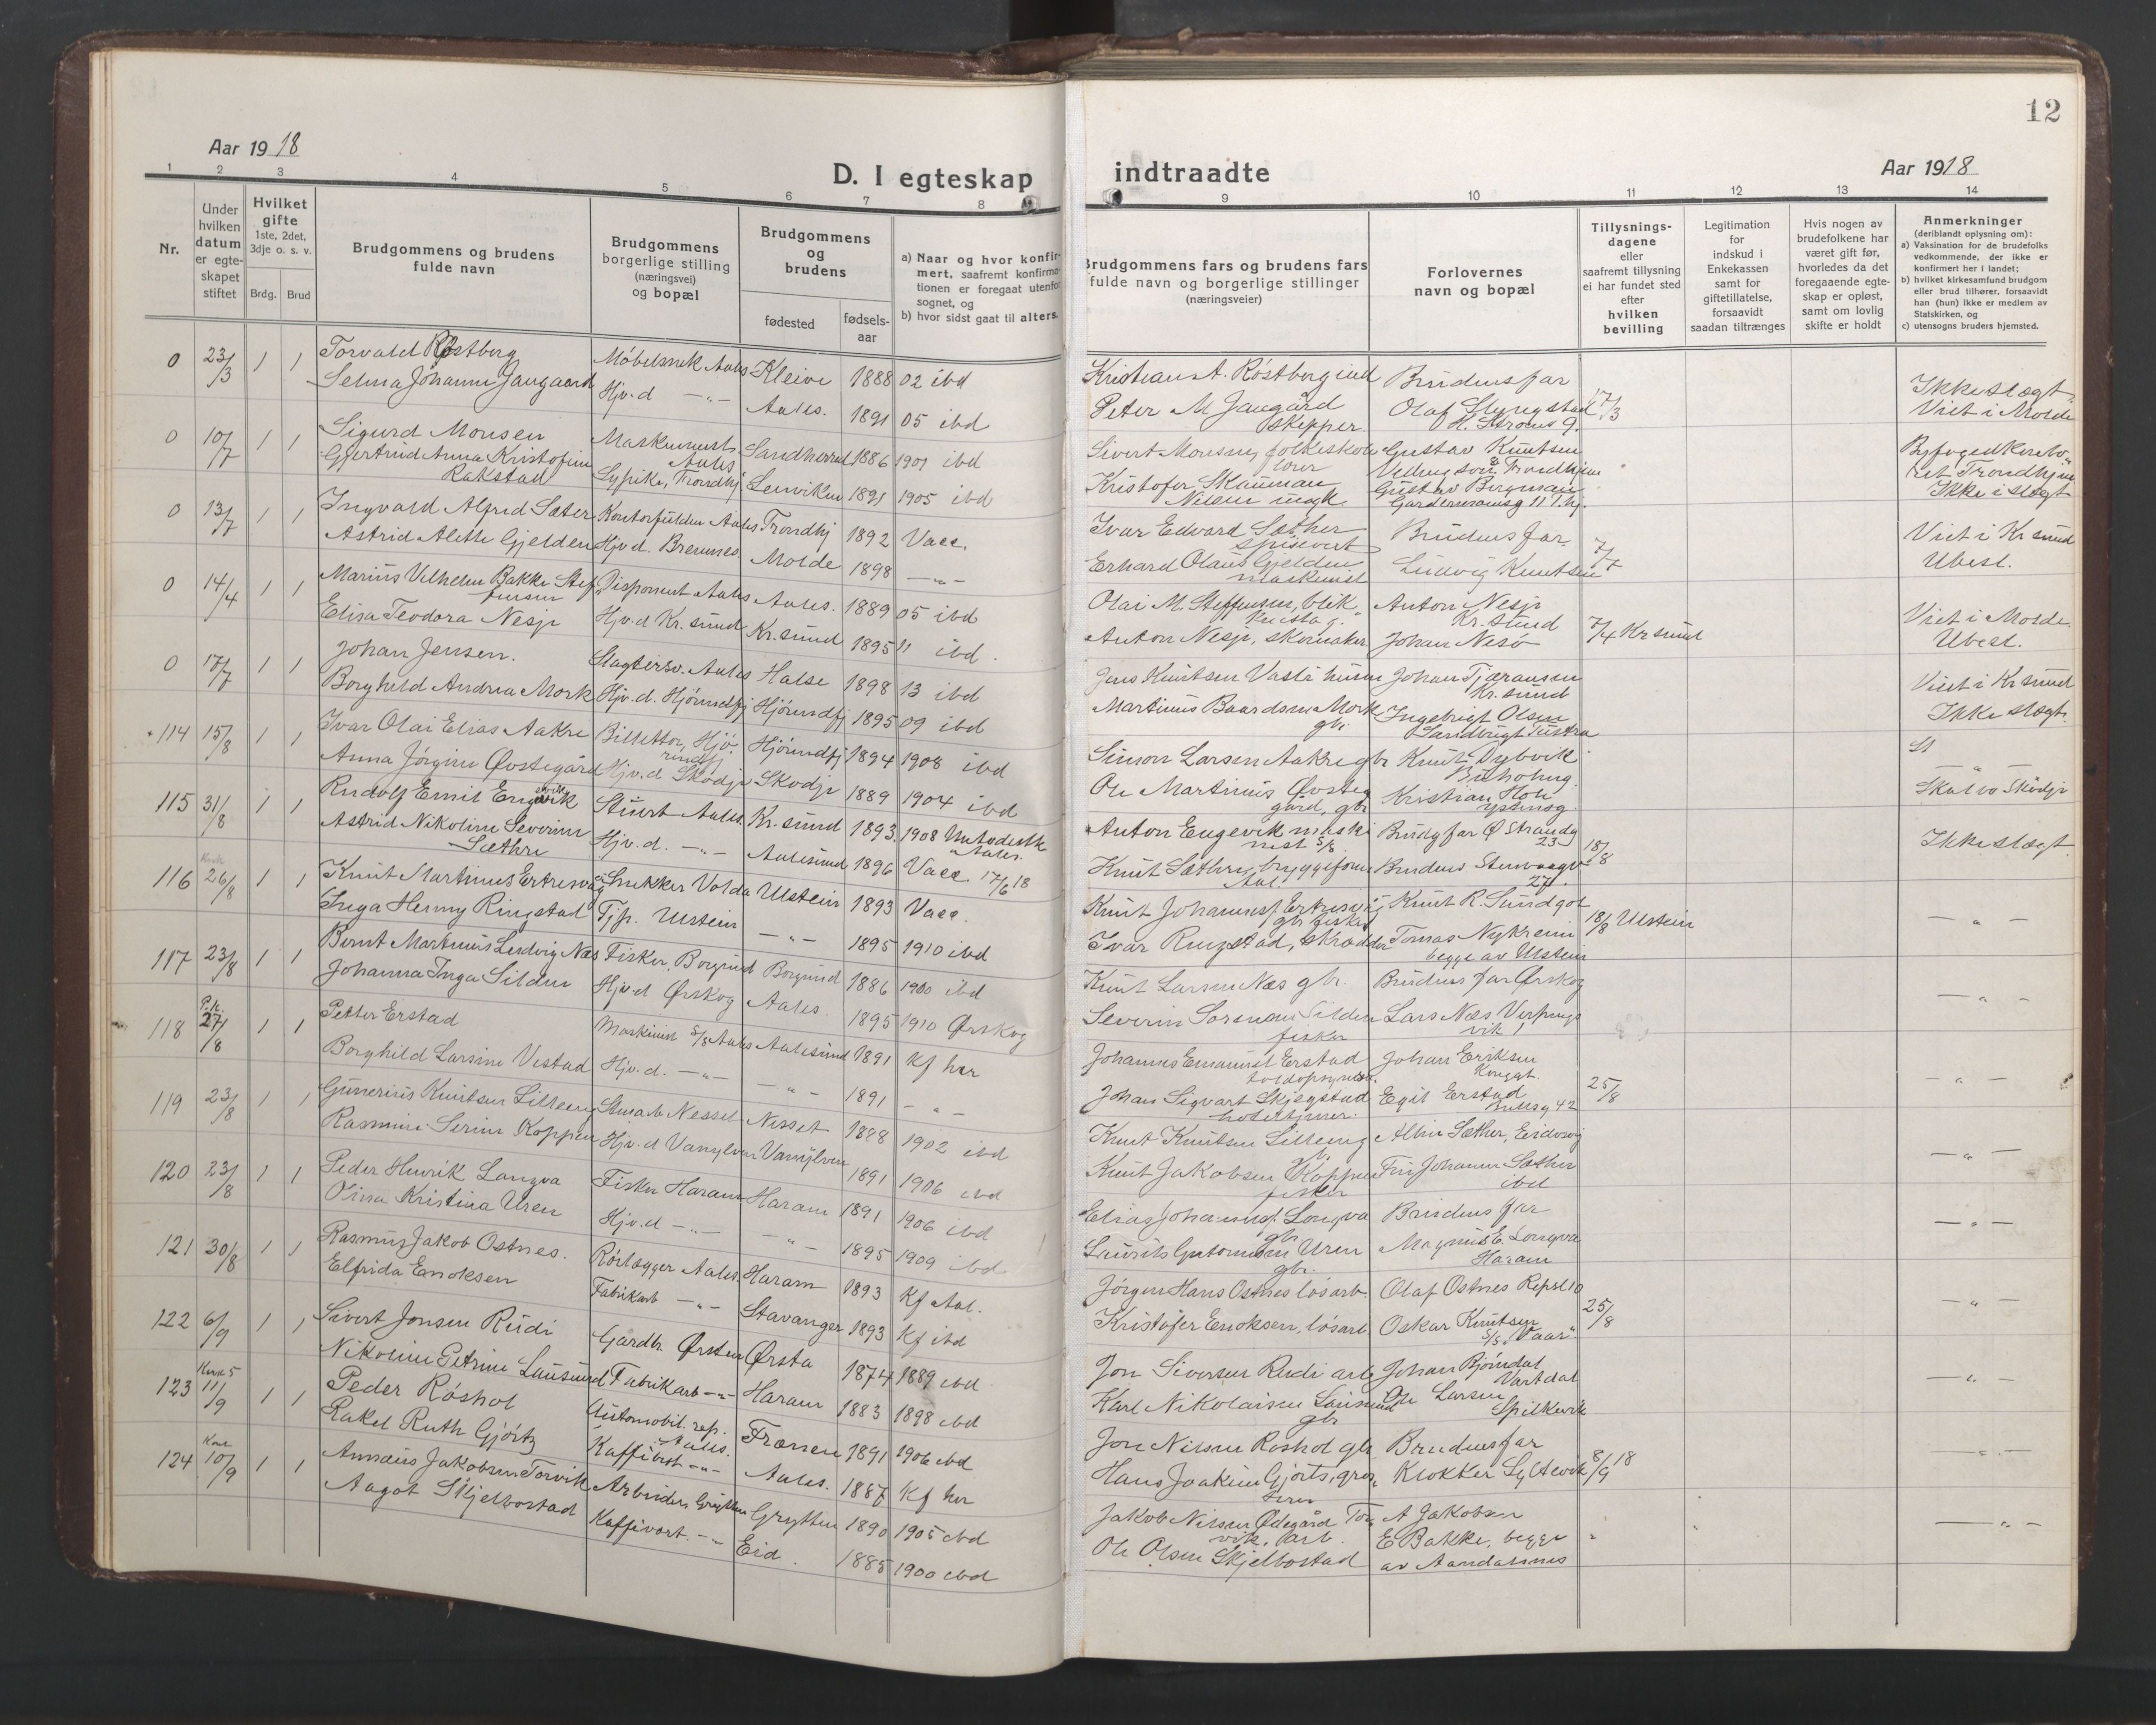 12
Aar 1918
D. I egteskap indtraadte
Aar 1918
1 2 3 4 5 6 7 8 9 10 11 12 13 14
Nr.
Under hvilken datum er egte-skapet stiftet
Hvilket gifte 1ste, 2det, 3dje o. s. v.
Brdg. Brud
Brudgommens og brudens fulde navn
Brudgommens borgerlige stilling (næringsvei) og bopæl
Brudgommens og brudens
fødested
fødsels-aar
a) Naar og hvor konfir-mert, saafremt konfirma-tionen er foregaat utenfor sognet, og
b) hvor sidst gaat til alters.
Brudgommens fars og brudens fars fulde navn og borgerlige stillinger (næringsveier)
Forlovernes navn og bopæl
Tillysnings-dagene eller saafremt tillysning ei har fundet sted efter hvilken bevilling
Legitimation for indskud i Enkekassen samt for giftetillatelse, forsaavidt saadan tiltrænges
Hvis nogen av brudefolkene har været gift før, hvorledes da det foregaaende egte-skap er opløst, samt om lovlig skifte er holdt
Anmerkninger (deriblandt oplysning om):
a) Vaksination for de brudefolks vedkommende, der ikke er konfirmert her i landet;
b) hvilket kirkesamfund brudgom eller brud tilhører, forsaavidt han (hun) ikke er medlem av Statskirken, og
c) utensogns bruders hjemsted.
0 23/3 1 1 Torvald Røstberg Møbelsnek Aales Kleive 1888 02 ibd Kristian A. Røstberg Brudens far 17/3 Ikke slægt
Selma Johanne Jangaard Hjv.d -"- Aales. 1891 05 ibd Peter M Jangård skipper. Olaf Slyngstad Viet i Molde
0 10/7 1 1 Sigurd Monsen Maskinmest. Aales Sandherred 1886 1901 ibd Sivert Monsen, folkeskole lærer Gustav Knutsen Byfogedkonto-ret Trondhjem
Gjertrud Anna Kristofine Rakstad Trondhj Lenviken 1891 1905 ibd Kristofer Skauman Nilsen Gustav Bergman Ikke i slægt
0 13/7 1 1 Ingvald Alfred Sæter Aales Trondhj 1892 Vacc. Ivar Edvard Sæther spisevert Brudens far. 7/7 Viet i Kr sund
Astrid Alette Gjelden Hjv d. Bremnes Molde 1898 -"- Erhard Olaus Gjelden maskinist Ludvig Knutsen Ubesl.
0 14/4 1 1 Marius Vilhelm Bakke Stef-fensen Disponent Aales Aales. 1889 05 ibd Olai M. Steffensen, blik Anton Nesje Kr. sund Viet i Molde.
Elisa Teodora Nesje Hjv.d Kr. sund Kr. sund 1895 11 ibd. Anton Nesje, skomaker Johan Nesø 7/4 Kr sund Ubesl.
0 17/7 1 1 Johan Jensen. Slagtersv. Aales Halse 1898 13 ibd Jens Knutsen Johan Tjæransen Kr. sund Viet i Kr sund
Borghild Andrea Mork Hjv.d. Hjørundfj Hjørundfj 1895 09 ibd Martinus Baardsen Mork gbr Ingebrigt Olsen Tustna Ikke slægt.
114 15/8 1 1 Ivar Olai Elias Aakre Billettør, Hjø-rundfj Hjørundfj 1894 1908 ibd Simon Larsen Aakre gbr Knut Dybvik
Anna Jørgine Øvstegård Hjv.d Skodje Skodje 1889 1904 ibd Ole Martinus Øvste-gård, gbr Kristian Hole Skodje
115 31/8 1 1 Rudolf Emil Engevik Stuert Aales. Kr. sund 1893 1908 Metodistk. Aales. Anton Engevik maski-nist S/S Brudg far Ø Strandg 23 18/8 Ikke slægt
Astrid Nikoline Severine Sæthre Hjv.d. -"- Aalesund 1896 Vacc 17/6 18 Knut Sæthre, bryggeform Aal. Brudens Stenvaagv 27.
116 26/8 1 1 Knut Martinus Ertresvåg Snekker Volda Ulstein 1893 Vacc. Knut Johannes Ertresvåg gbr fisker Knut R. Sundgot 18/8 Ulstein -"-
Inga Henny Ringstad Tjp. Ulstein -"- 1895 1910 ibd Ivar Ringstad, skrædder Tomas Nykreim begge av Ulstein
117 23/8 1 1 Bernt Martinus Ludvig Næs Fisker, Borgund Borgund 1886 1900 ibd Knut Larsen Næs gbr. Brudens far Ørskog -"-
Johanna Inga Silden Hjv.d Ørskog Aales. 1895 1910 Ørskog Severin Sørensen Silden fisker Lars Næs
118 27/8 1 1 Petter Erstad Maskinist S/S Aales Aalesund 1891 Kf her Johannes Emanuel Erstad toldopsynsm. Johan Eriksen Kongsgt. 25/8 -"-
Borghild Larsine Vestad Hjv.d. -"- -"- 1891 -"- Johan Sigvart Skjegstad Egil Erstad 42
119 23/8 1 1 Gunerius Knutsen Lilleeng Nesset Nesset 1888 1902 ibd Knut Knutsen Lilleeng gb. Albin Sæther, Eidsvig -"-
Rasmine Serine Koppen Hjv.d Vanylven Vanylven 1891 1906 ibd Knut Jakobsen Koppen fisker Fru Johanne Sæther ibd
120 23/8 1 1 Peder Henrik Longva Fisker Haram Haram 1891 1906 ibd Elias Johannes. Longva gbr Brudens far -"-
Olina Kristina Uren Hjv.d -"- -"- 1895 1909 ibd Laurits Guttormsen Uren gbr. Magnus E. Longva Haram
121 30/8 1 1 Rasmus Jakob Ostnes. Rørlægger Aales. Haram 1893 Kf Aal. Jørgen Hans Ostnes løsarb. Olaf Ostnes Repsl 10 25/8 -"-
Elfrida Enoksen Fabrikarb -"- Stavanger 1893 Kf ibd Kristofer Enoksen, løsarb Oskar Knutsen S/S "Vaar"
122 6/9 1 1 Sivert Jonsen Rudi Gårdbr. Ørsten Ørsta 1874 1889 ibd Jon Sivertsen Rudi arb Johan Bjørndal Vartdal -"-
Nikoline Petrine Lausund Fabrikarb -"- Haram 1883 1898 ibd Karl Nikolaisen Lausund gbr Ole Larsen Spilkevik
123 11/9 1 1 Peder Røshol Automobil.rep. Aales. Frænen 1891 1906 ibd Jon Nilsen Røshol gbr Brudens far 8/9 18 -"-
Rakel Ruth Gjørtz Kaffibest -"- Aales. 1887 Kf her Hans Joakim Gjørts, gros Klokker Syltevik
124 10/9 1 1 Annæus Jakobsen Torvik Arbeider, Grytten Grytten 1890 1905 ibd Jakob Nilsen Ødegård Tor-vik, arb. A Jakobsen -"-
Aagot Skjelbostad Kaffivert. -"- Eid. 1885 1900 ibd Ole Olsen Skjelbostad E Bakke, begge av Aandalsnes